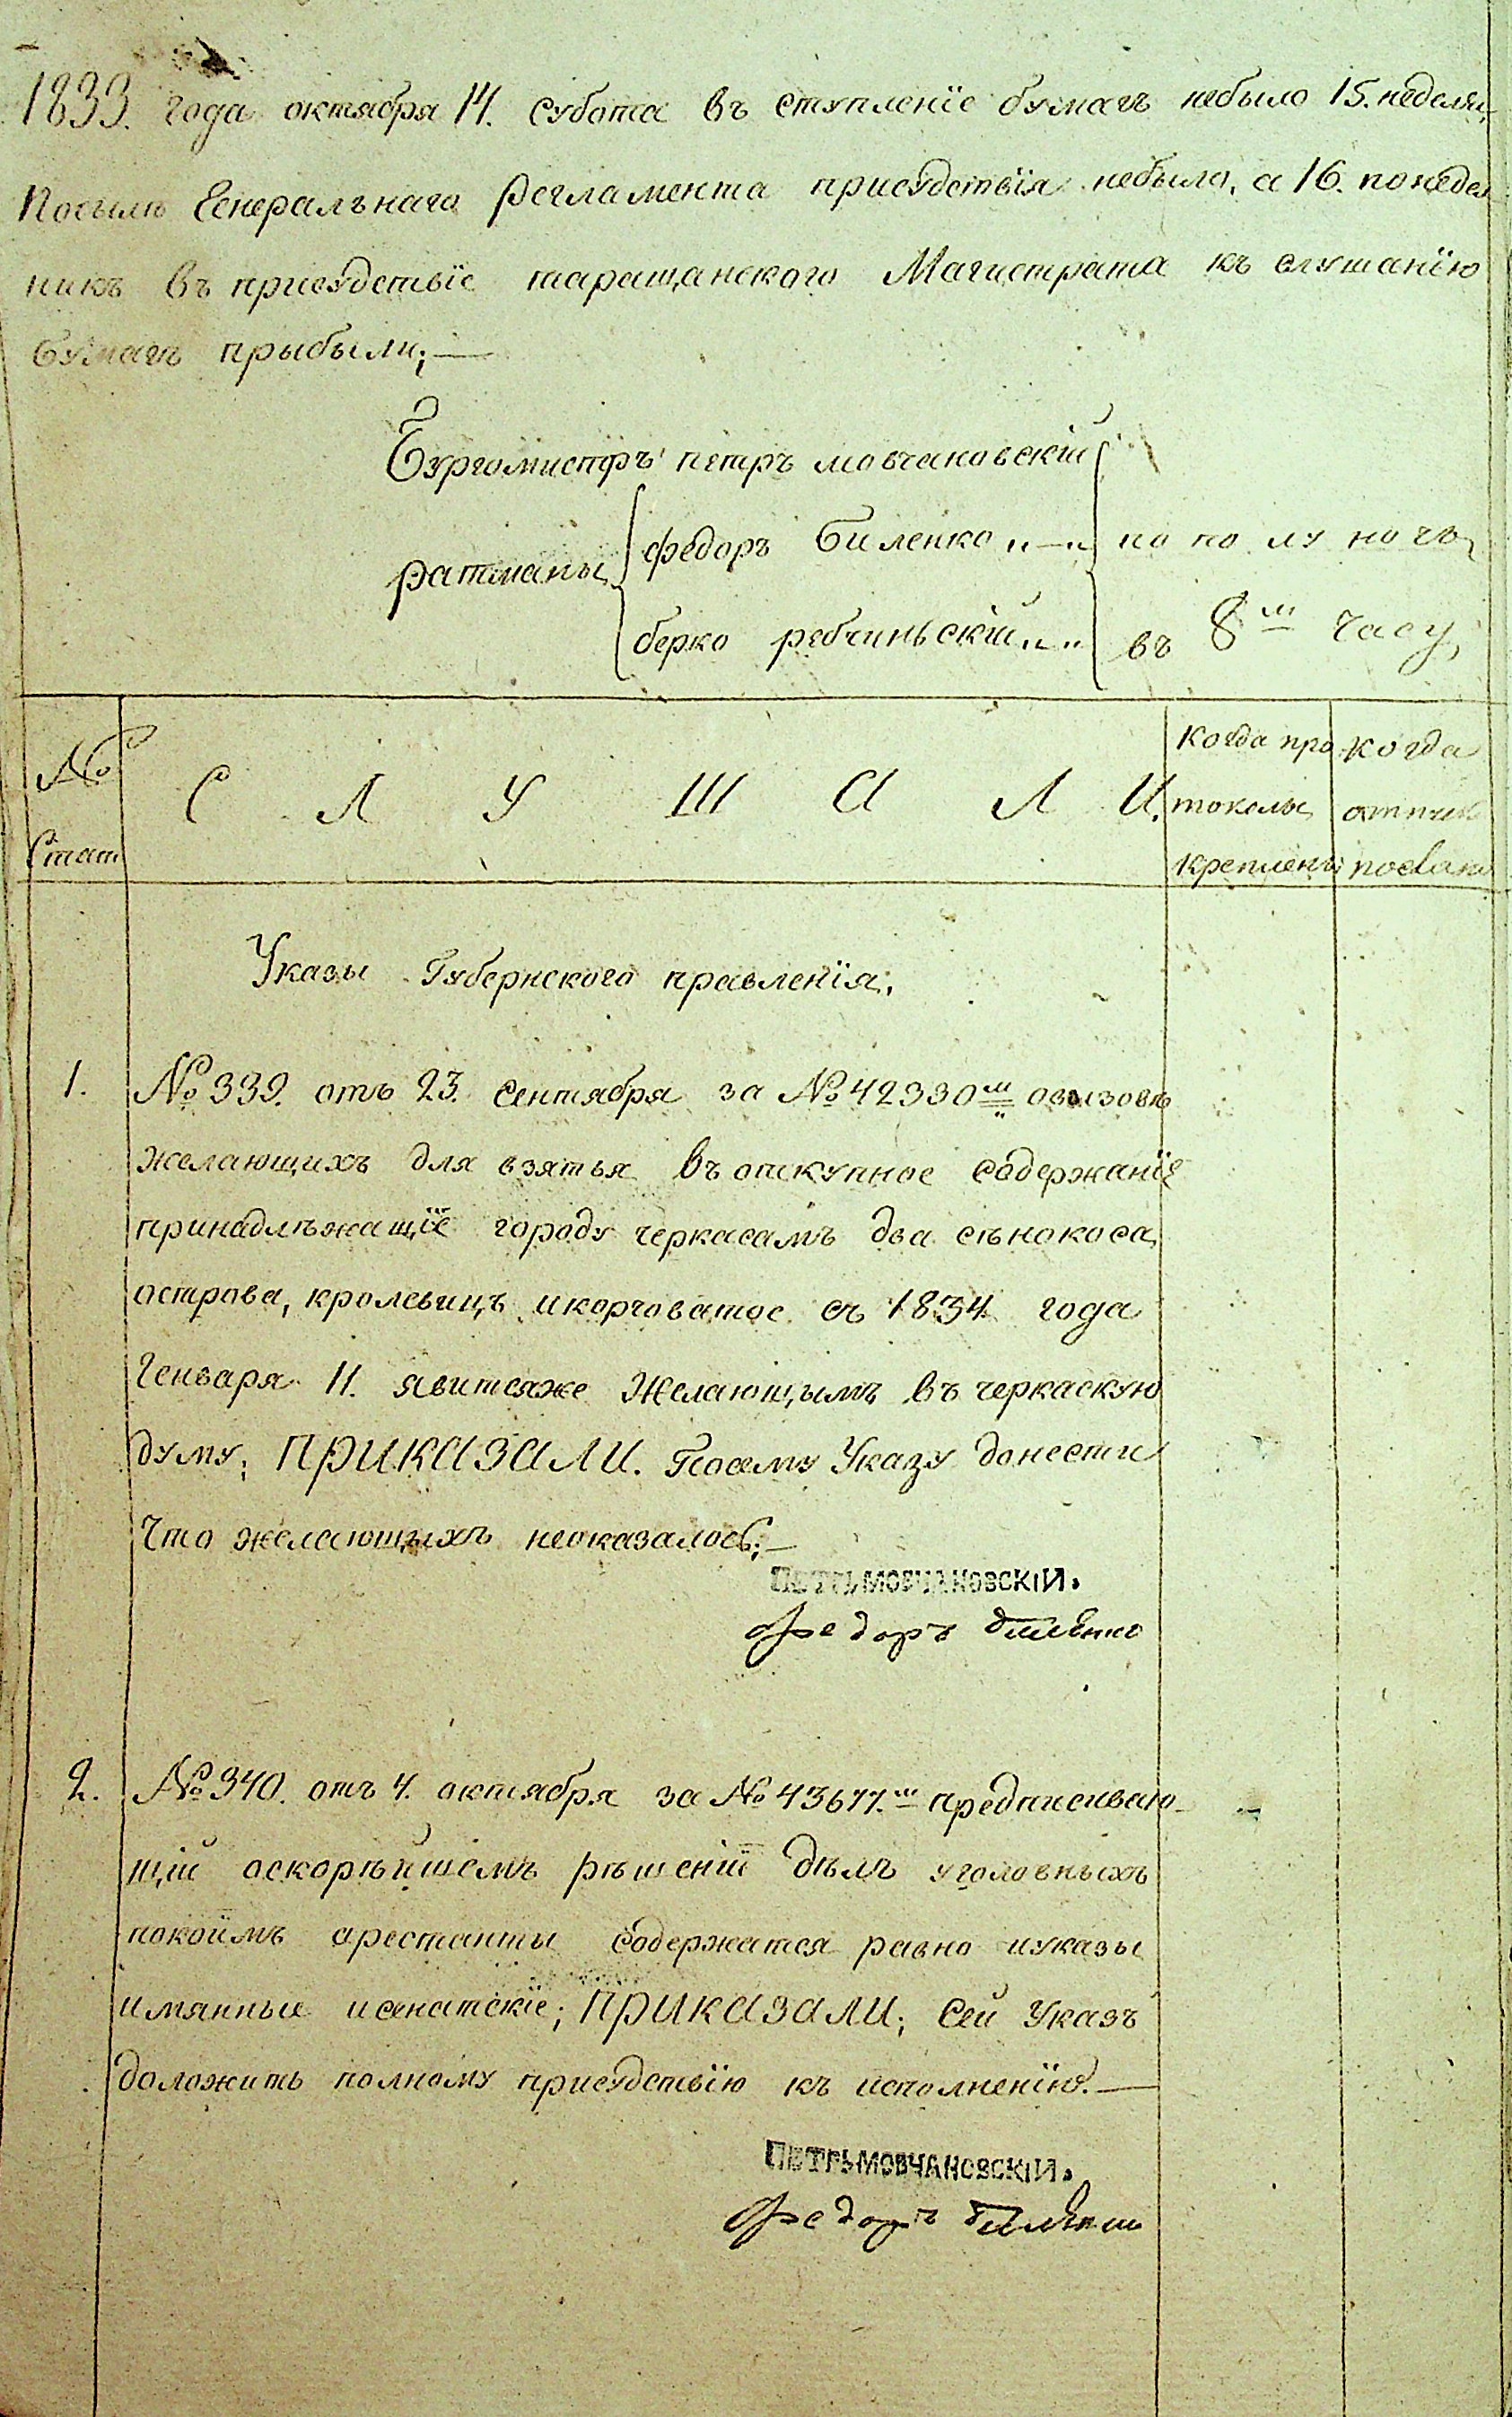 1833. года октября 14. субота въ ступленіе бумагъ небыло 15. неделя,
Посылѣ Генеральнаго Регламента присудствія небыло, а 16. понедел
никъ въ присудствіе таращанского Магистрата къ слушанію
бумагъ прыбыли;—
Бургомистръ петръ мовчановскій
ратманы федоръ биленко „—„ по полуночѣ
берко ребчиньскій„ „ въ 8ш часу,
№ Стат
С Л У Ш А Л И.
Когда протоколы крепленъ
Когда отпуск посланъ
Указы Губернского правленія.
1. №339. отъ 23. сентября за №42330ш овызовѣ
желающихъ для взятья въ опекунное содержаніе
принадлѣжащіе городу черкасамъ два сѣнокоса
острова, кролевицъ икорчоватое съ 1834 года
Генваря 11. явитсяже желающымъ въ черкаскую
думу; ПРИКАЗАЛИ. Посему Указу донести
что желающыхъ неоказалось;—
ПЕТРЬ МОВЧАНОВСКІЙ.
Федоръ Биленко
2. №340. отъ 4. октября за №43677.ш предписиваю-
щій оскорѣйшемъ рѣшеніи дѣлъ уголовныхъ
покоимъ арестанты содержатся равно иуказы
имянные исенатскіе; ПРИКАЗАЛИ; Сей Указъ
доложить полному присудствію къ исполненію.—
ПЕТРЬ МОВЧАНОВСКІЙ.
Федоръ Биленко